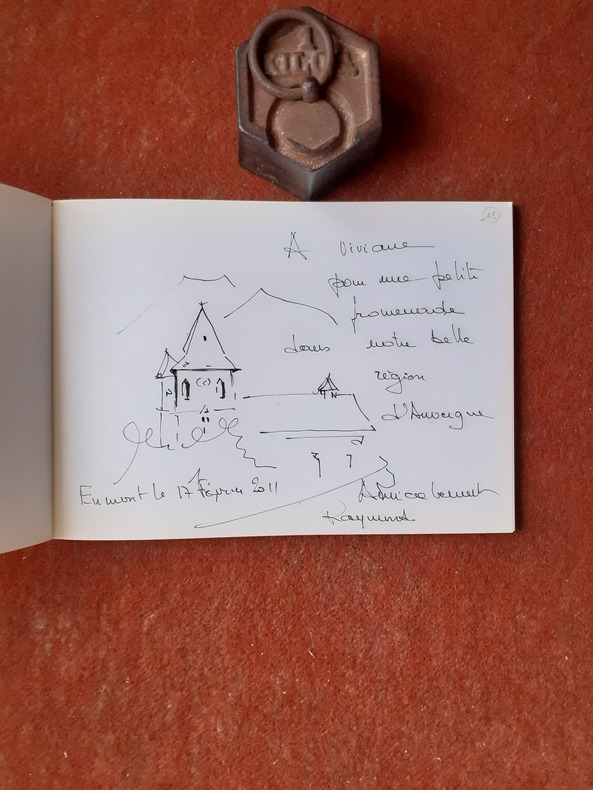 1
KILOG
12
A Viviane
pour une petite
promenade
dans notre belle
région
d'Auvergne
le 17 Février 2011
Amicalement
Raymond